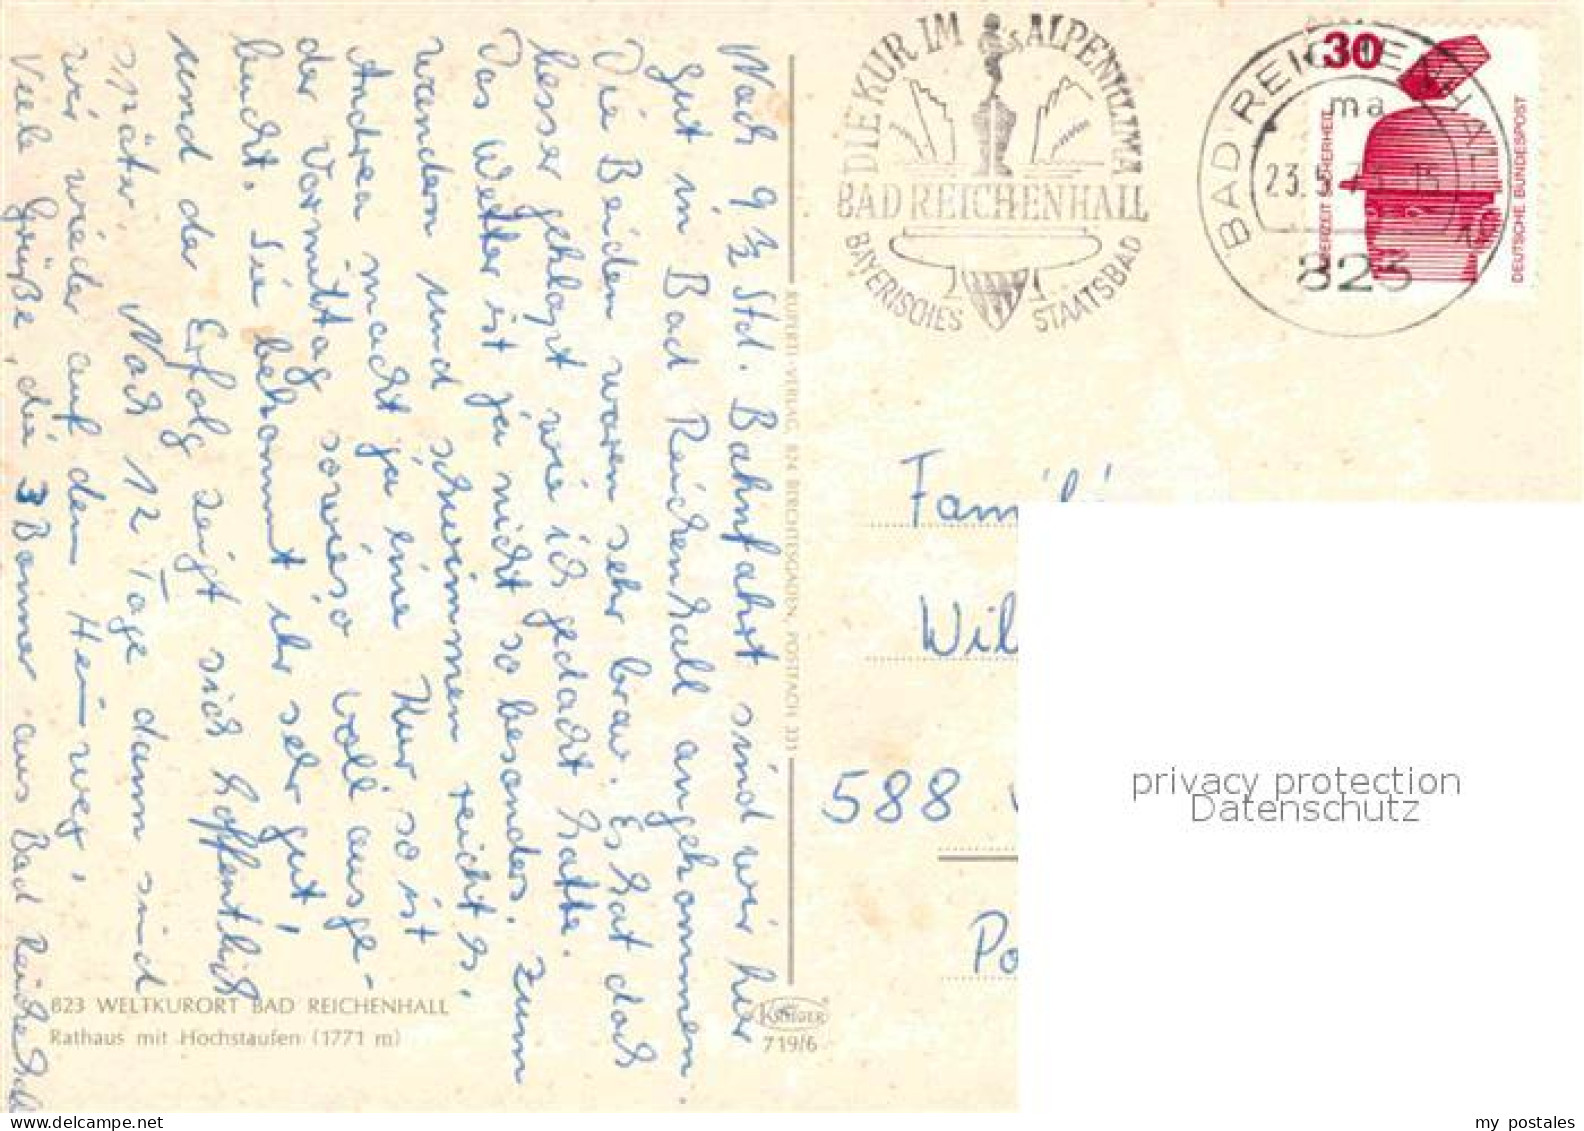 Nach 9 ½ Std. Bahnfahrt sind wir hier
gut in Bad Reichenhall angekommen.
Die Beiden waren sehr brav. Es hat doch
besser geklappt wie ich gedacht hatte.
Das Wetter ist ja nicht so besonders. Zum
wandern und schwimmen reicht es.
Andrea macht ja eine Kur so ist
der Vormittag sowieso voll ausge-
bucht. Sie bekommt ihr sehr gut!
und der Erfolg zeigt sich hoffentlich
später. Nach 12 Tage dann sind
wir wieder auf dem Heimweg,
Viele Grüße, die 3 Bonner aus Bad Reichenhall
823 WELTKURORT BAD REICHENHALL
Rathaus mit Hochstaufen (1771 m)
KRÜGER
719/6
RUPERTI-VERLAG, 824 BERCHTESGADEN, POSTFACH 331
DIE KUR IM ALPENKLIMA
BAD REICHENHALL
BAYERISCHES STAATSBAD
BAD REICHENHALL
ma
23.5.
15
823
30
JEDERZEIT SICHERHEIT
DEUTSCHE BUNDESPOST
Famili
Wil
588
Po
privacy protection
Datenschutz
my postales